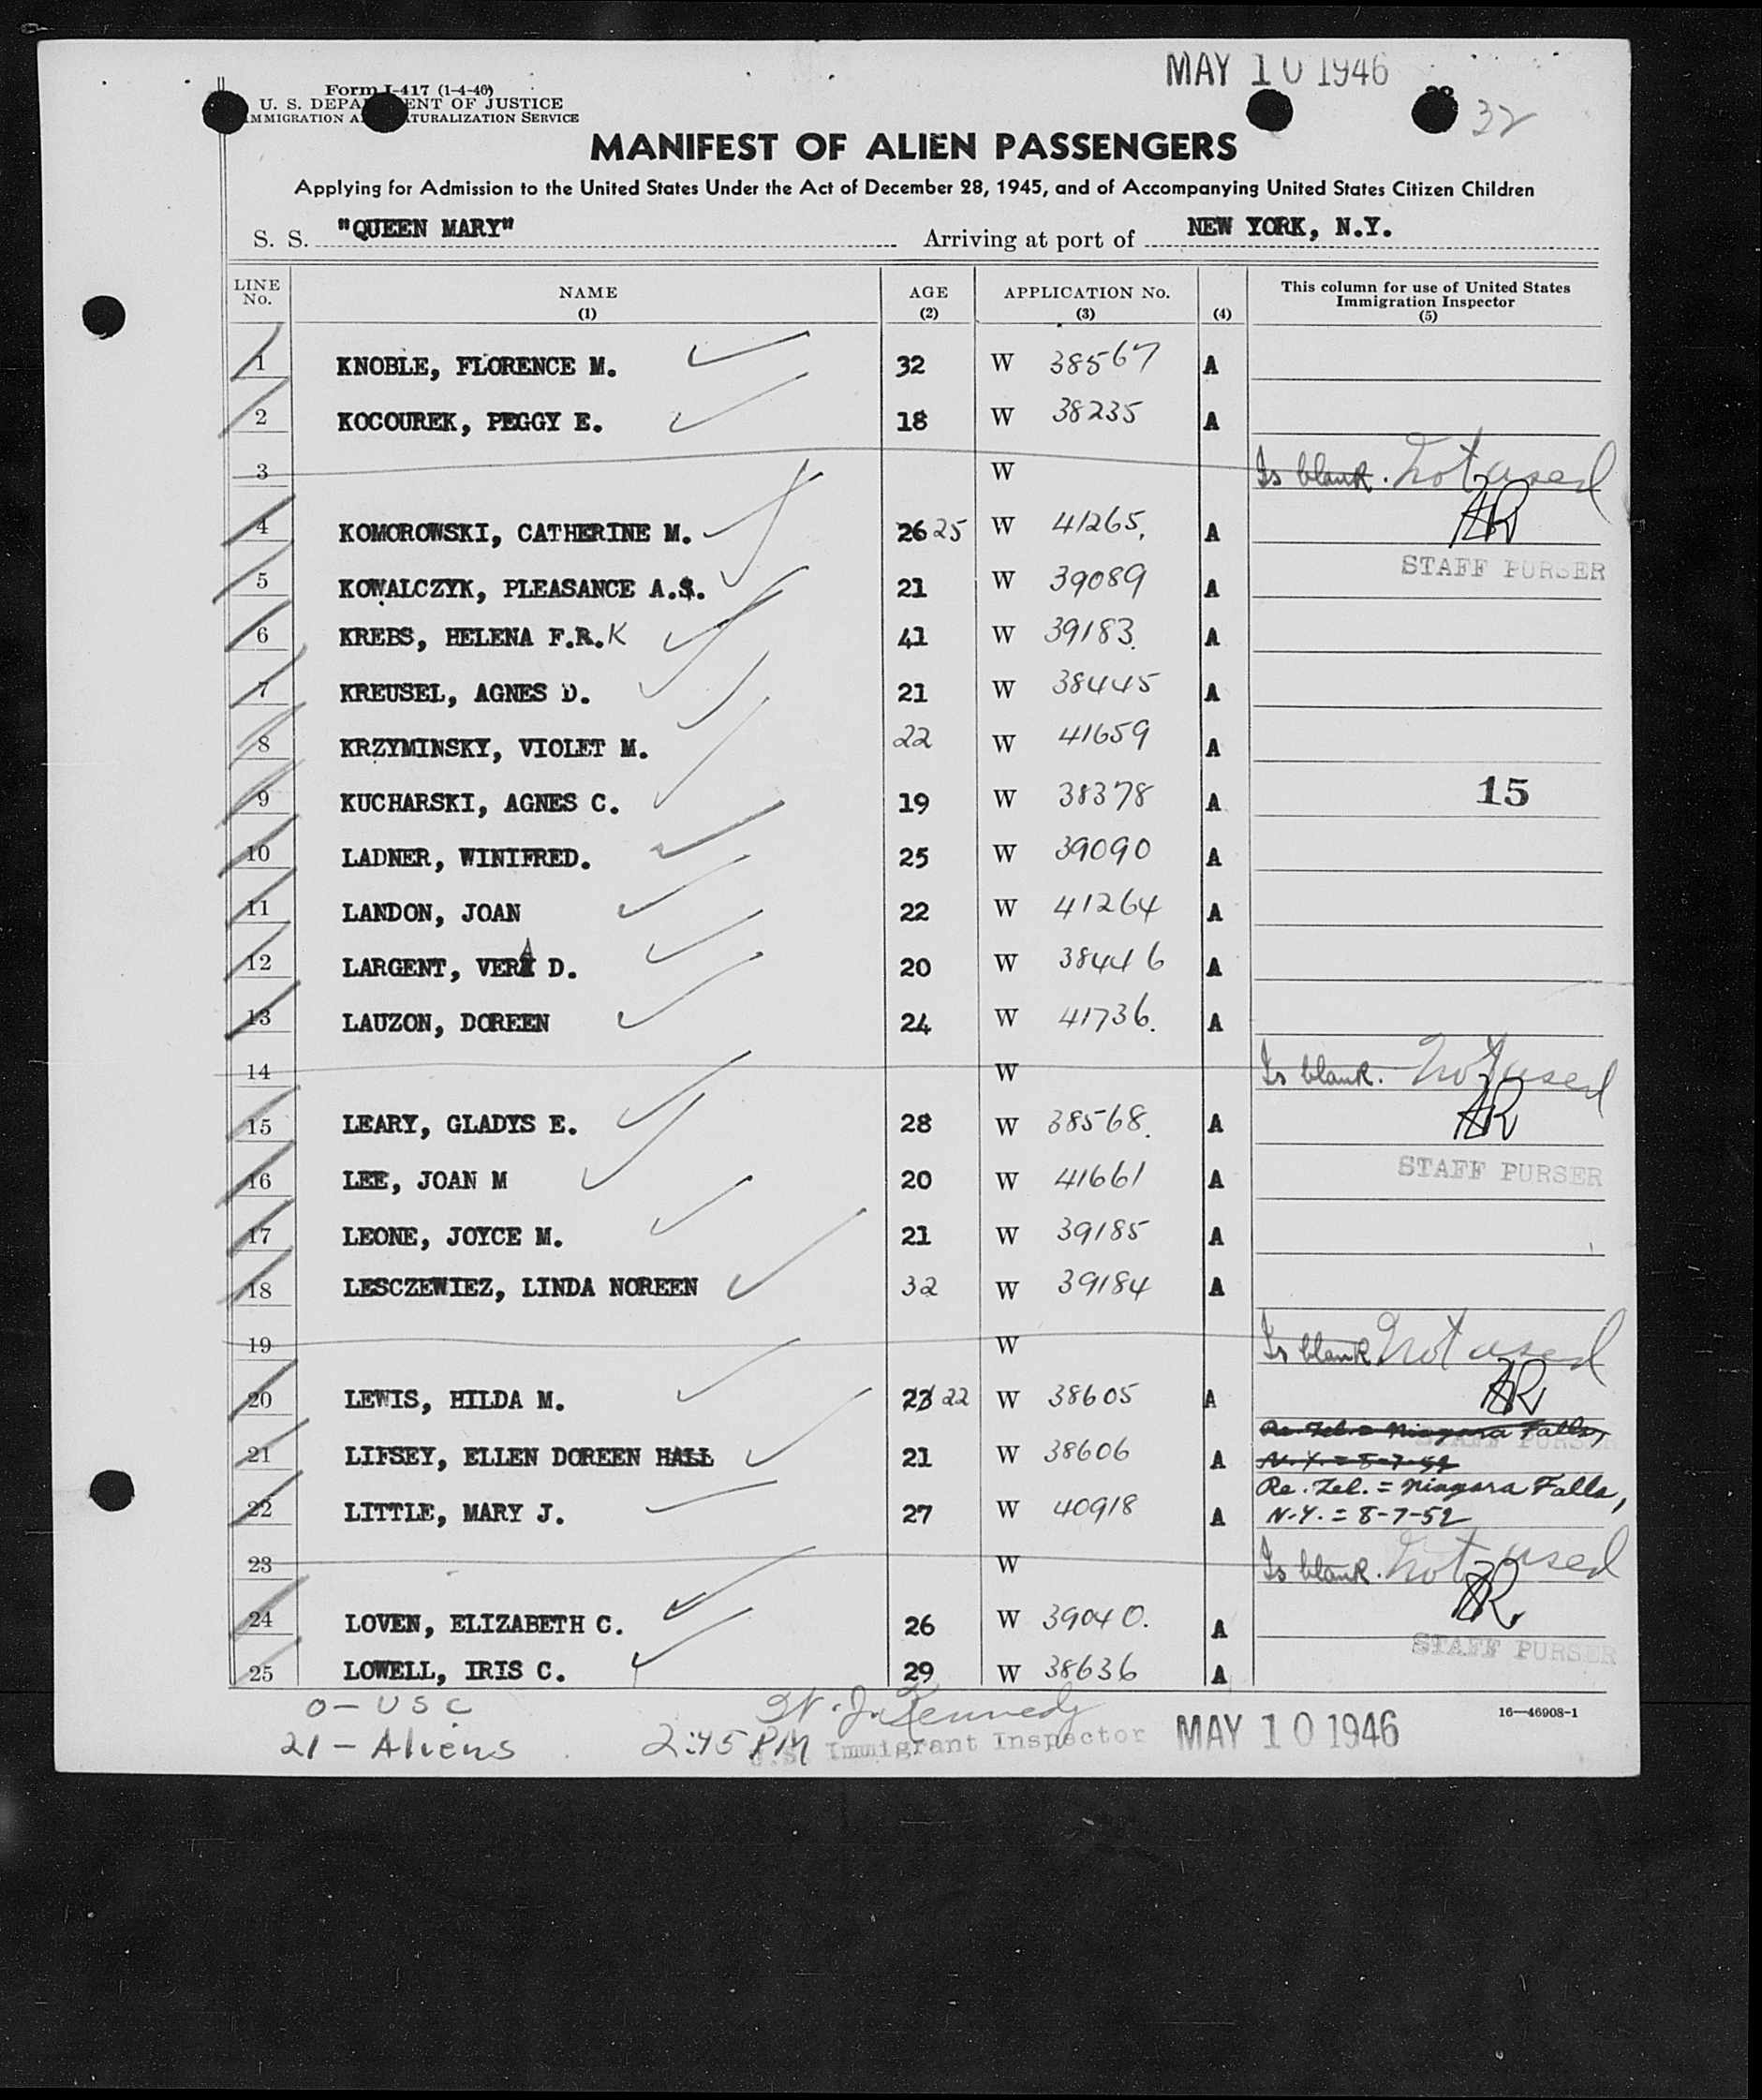 MAY 10 1946
Form I-417 (1-4-46)
U. S. DEPA ENT OF JUSTICE
IMMIGRATION A TURALIZATION SERVICE
32
MANIFEST OF ALIEN PASSENGERS
Applying for Admission to the United States Under the Act of December 28, 1945, and of Accompanying United States Citizen Children
S. S. "QUEEN MARY" Arriving at port of NEW YORK, N.Y.
LINE No. NAME (1) AGE (2) APPLICATION No. (3) (4) This column for use of United States Immigration Inspector (5)
1 KNOBLE, FLORENCE M. 32 W 38567 A
2 KOCOUREK, PEGGY E. 18 W 38235 A
3 W Is blank. Not used
4 KOMOROWSKI, CATHERINE M. 26 25 W 41265. A
STAFF PURSER
5 KOWALCZYK, PLEASANCE A.S. 21 W 39089 A
6 KREBS, HELENA F.R.K 41 W 39183. A
7 KREUSEL, AGNES D. 21 W 38445 A
8 KRZYMINSKY, VIOLET M. 22 W 41659 A
9 KUCHARSKI, AGNES C. 19 W 38378 A 15
10 LADNER, WINIFRED. 25 W 39090 A
11 LANDON, JOAN 22 W 41264 A
12 LARGENT, VERA D. 20 W 38446 A
13 LAUZON, DOREEN 24 W 41736. A
14 W Is blank. Not used
15 LEARY, GLADYS E. 28 W 38568. A
STAFF PURSER
16 LEE, JOAN M 20 W 41661 A
17 LEONE, JOYCE M. 21 W 39185 A
18 LESCZEWIEZ, LINDA NOREEN 32 W 39184 A
19 W Is blank Not used
20 LEWIS, HILDA M. 23 22 W 38605 A
Re. Zel. = Niagara Falls,
STAFF PURSER
21 LIFSEY, ELLEN DOREEN HALL 21 W 38606 A N.Y. = 8-7-52
Re. Zel. = Niagara Falls,
22 LITTLE, MARY J. 27 W 40918 A N.Y. = 8-7-52
23 W Is blank. Not used
24 LOVEN, ELIZABETH C. 26 W 39040. A
STAFF PURSER
25 LOWELL, IRIS C. 29 W 38636 A
0 - USC
21 - Aliens
2:45 PM
W. J. Kennedy
U.S. Immigrant Inspector
MAY 10 1946
16—46908-1